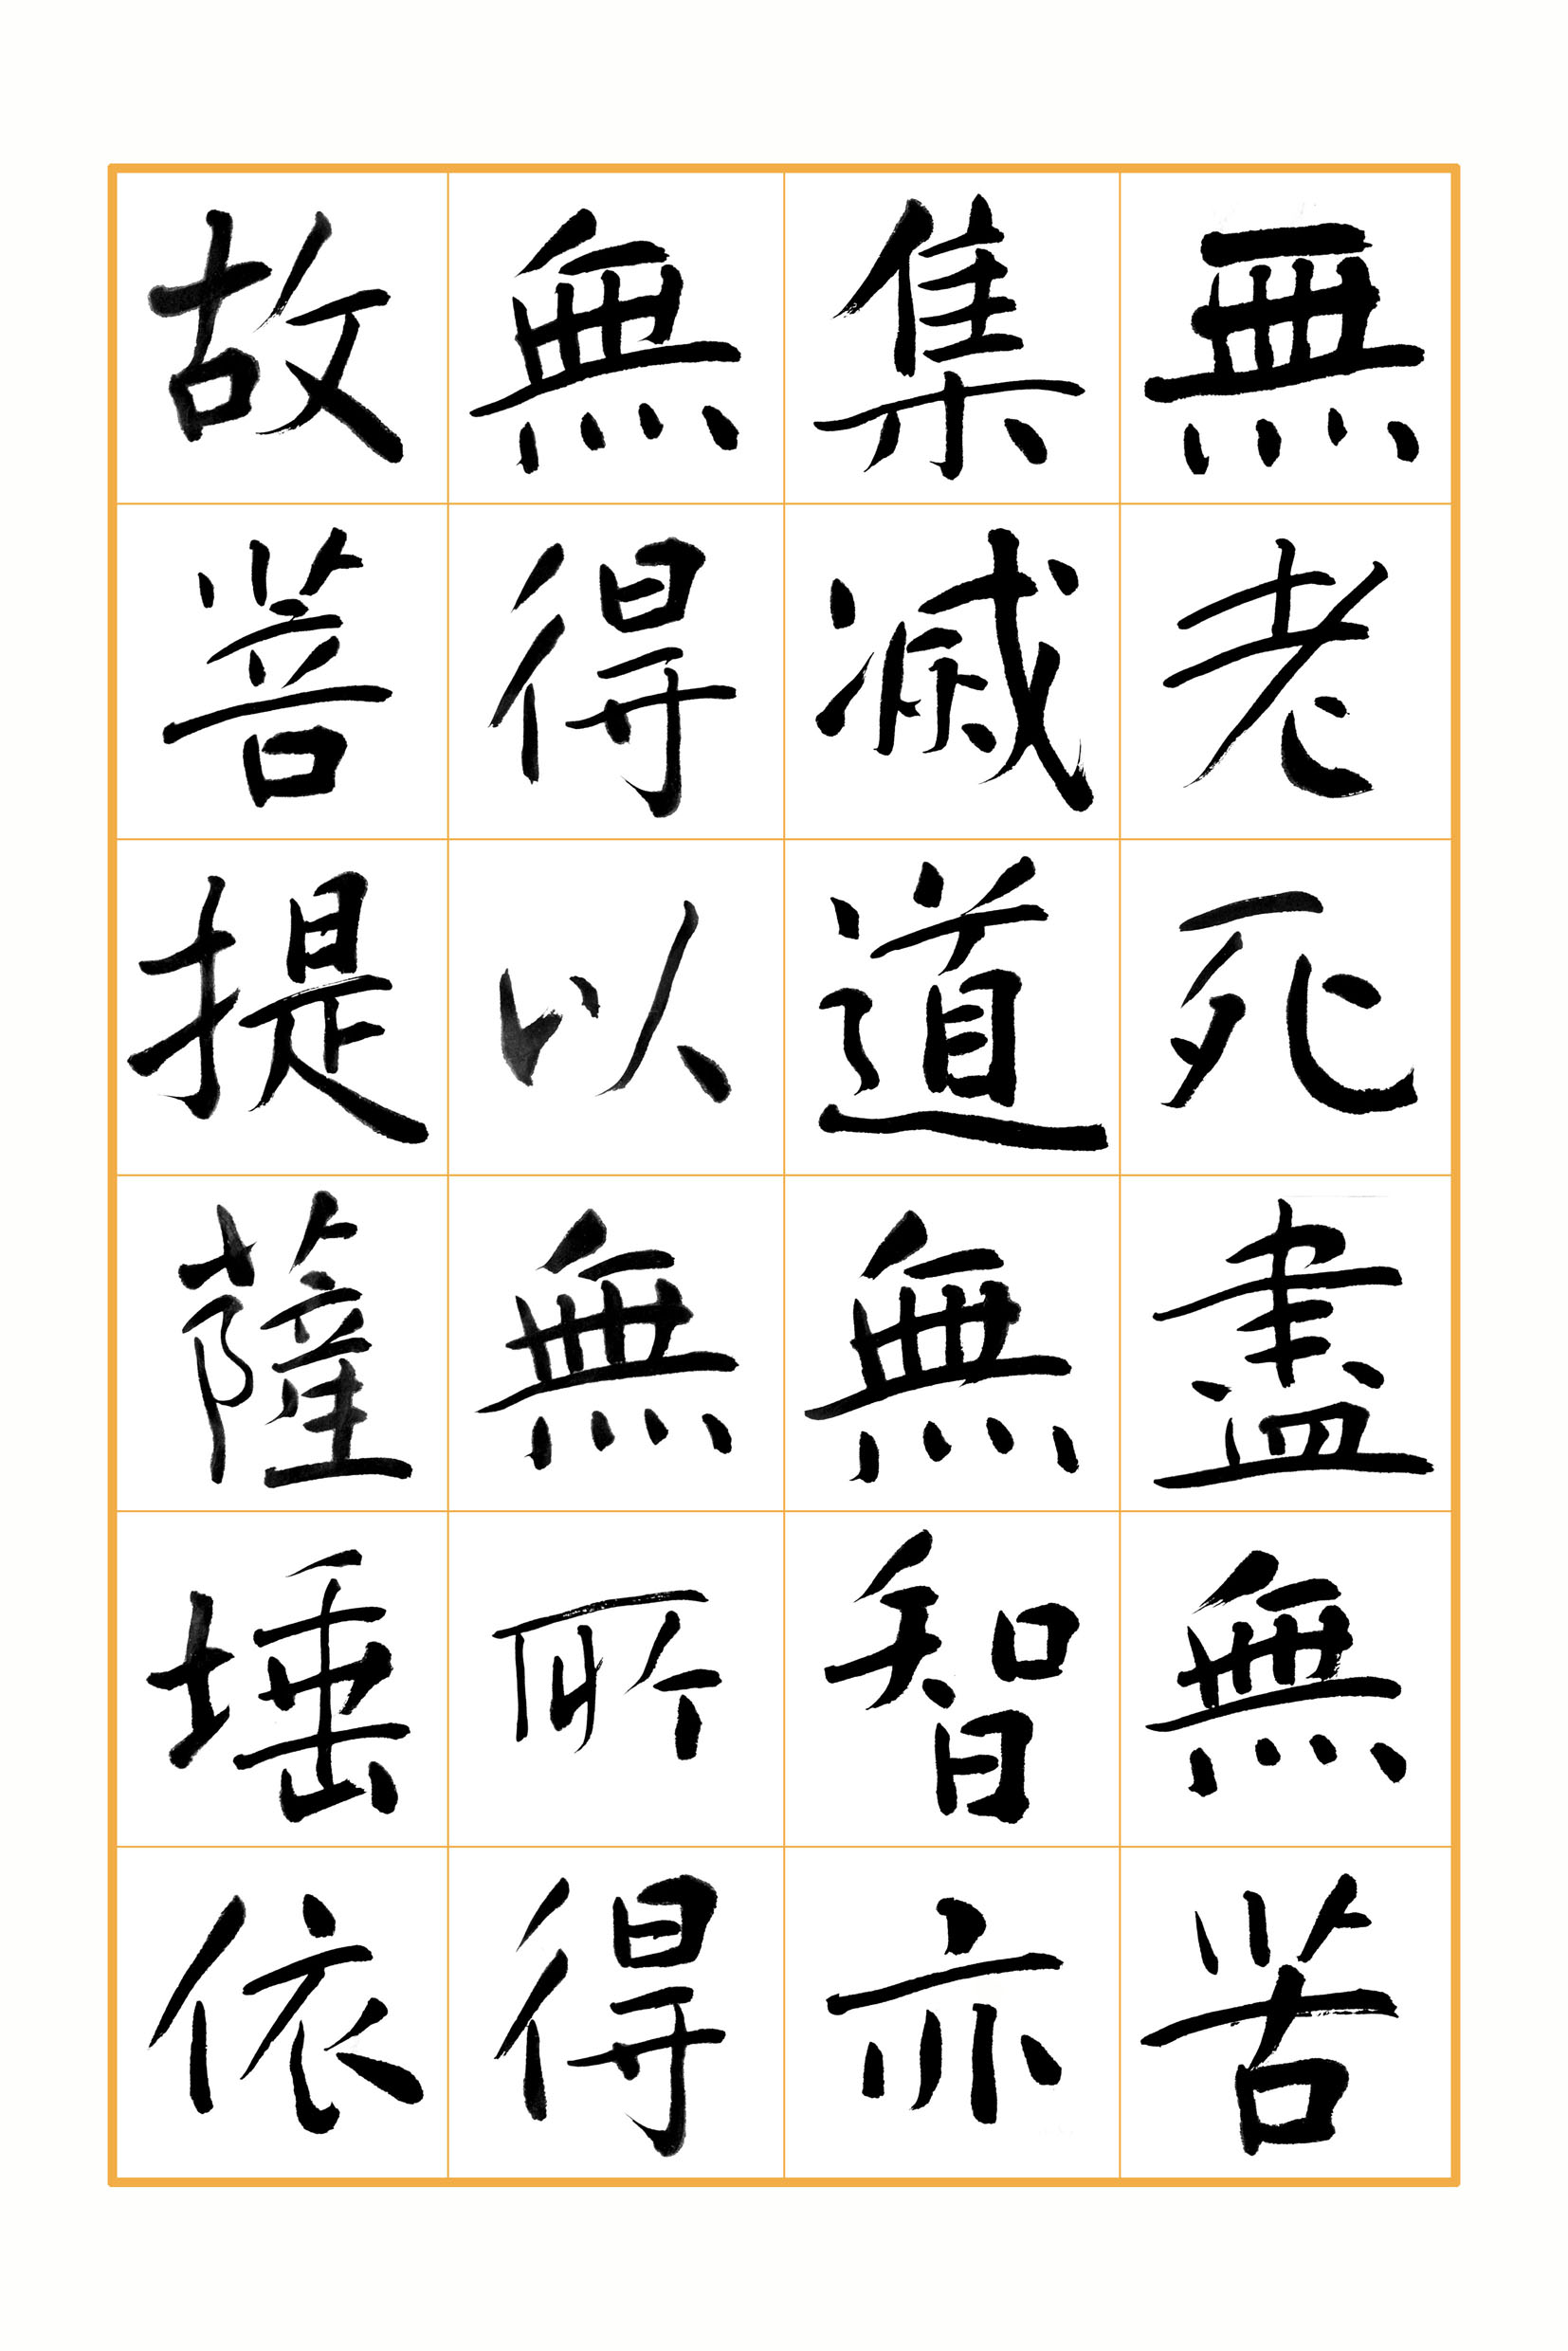 無老死盡無苦
集滅道無智亦
無得以無所得
故菩提薩埵依